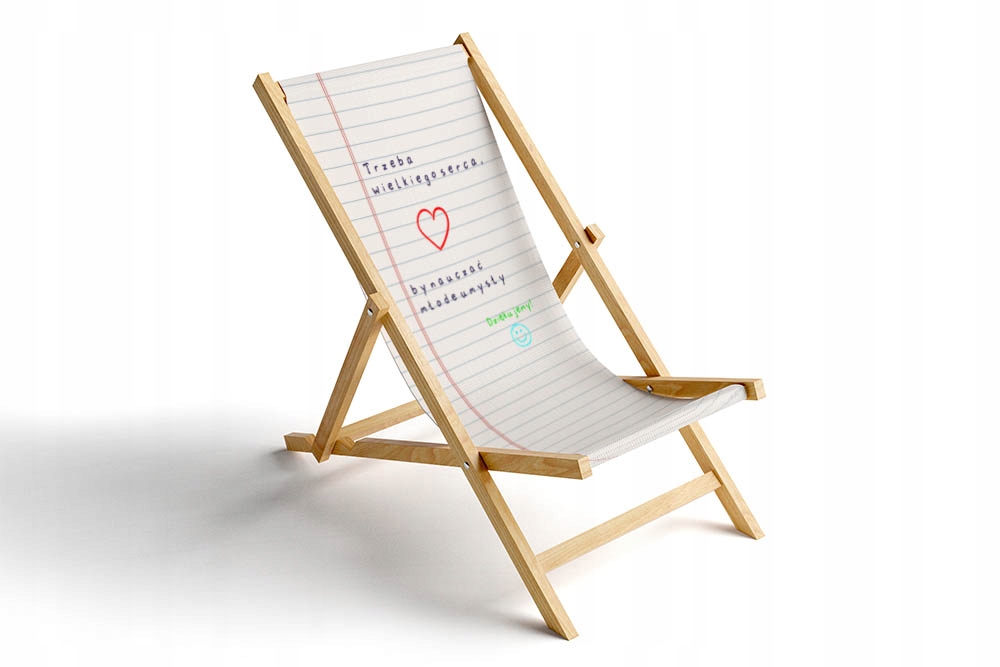 Trzeba
wielkiegoserca,
bynauczać
młodeumysły
Dziękujemy!